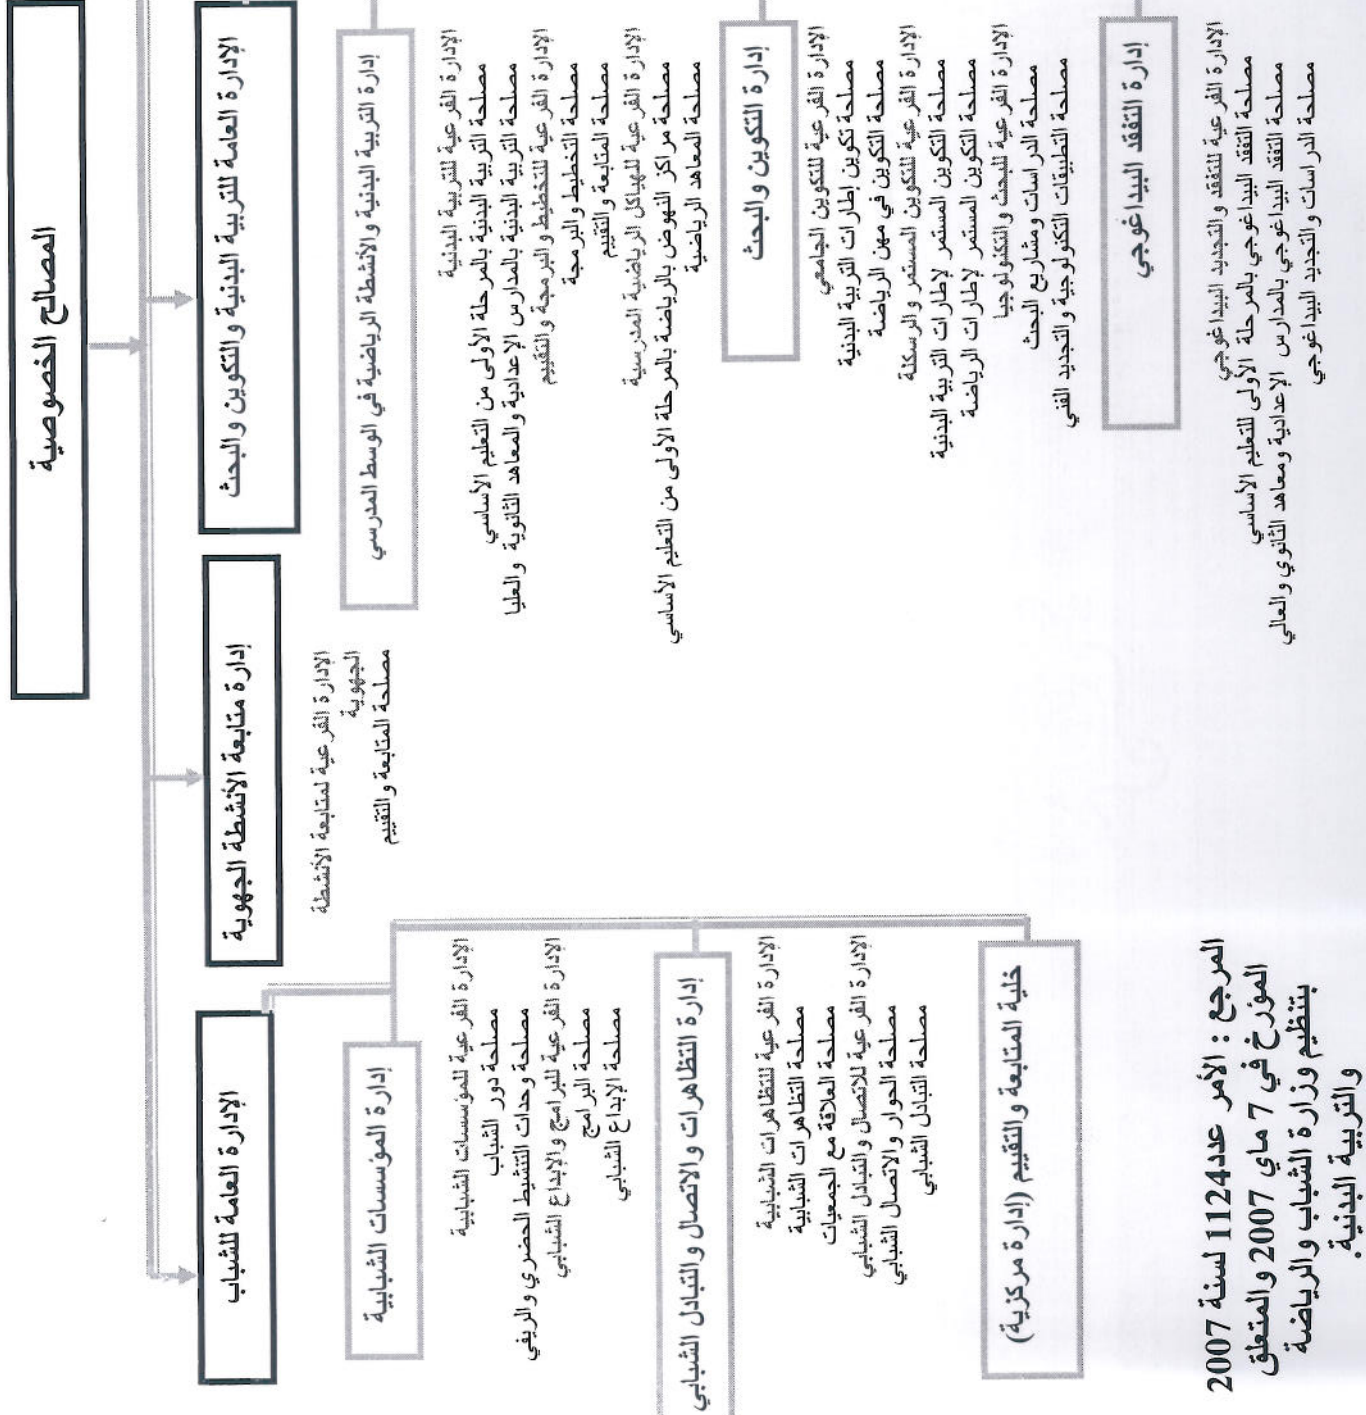 المصالح الخصوصية
الإدارة العامة للتربية البدنية والتكوين والبحث
إدارة التربية البدنية والأنشطة الرياضية في الوسط المدرسي
الإدارة الفرعية للتربية البدنية
مصلحة التربية البدنية بالمرحلة الأولى من التعليم الأساسي
مصلحة التربية البدنية بالمدارس الإعدادية والمعاهد الثانوية والعليا
الإدارة الفرعية للتخطيط والبرمجة والتقييم
مصلحة التخطيط والبرمجة
مصلحة المتابعة والتقييم
الإدارة الفرعية للهياكل الرياضية المدرسية
مصلحة مراكز النهوض بالرياضة بالمرحلة الأولى من التعليم الأساسي
مصلحة المعاهد الرياضية
إدارة التكوين والبحث
الإدارة الفرعية للتكوين الجامعي
مصلحة تكوين إطارات التربية البدنية
مصلحة التكوين في مهن الرياضة
الإدارة الفرعية للتكوين المستمر والرسكلة
مصلحة التكوين المستمر لإطارات التربية البدنية
مصلحة التكوين المستمر لإطارات الرياضة
الإدارة الفرعية للبحث والتكنولوجيا
مصلحة الدراسات ومشاريع البحث
مصلحة التطبيقات التكنولوجية والتجديد الفني
إدارة التفقد البيداغوجي
الإدارة الفرعية للتفقد والتجديد البيداغوجي
مصلحة التفقد البيداغوجي بالمرحلة الأولى للتعليم الأساسي
مصلحة التفقد البيداغوجي بالمدارس الإعدادية ومعاهد الثانوي والعالي
مصلحة الدراسات والتجديد البيداغوجي
إدارة متابعة الأنشطة الجهوية
الإدارة الفرعية لمتابعة الأنشطة
الجهوية
مصلحة المتابعة والتقييم
الإدارة العامة للشباب
إدارة المؤسسات الشبابية
الإدارة الفرعية للمؤسسات الشبابية
مصلحة دور الشباب
مصلحة وحدات التنشيط الحضري والريفي
الإدارة الفرعية للبرامج والإبداع الشبابي
مصلحة البرامج
مصلحة الإبداع الشبابي
إدارة التظاهرات والاتصال والتبادل الشبابي
الإدارة الفرعية للتظاهرات الشبابية
مصلحة التظاهرات الشبابية
مصلحة العلاقة مع الجمعيات
الإدارة الفرعية للاتصال والتبادل الشبابي
مصلحة الحوار والاتصال الشبابي
مصلحة التبادل الشبابي
خلية المتابعة والتقييم (إدارة مركزية)
المرجع : الأمر عدد1124 لسنة 2007
المؤرخ في 7 ماي 2007 والمتعلق
بتنظيم وزارة الشباب والرياضة
والتربية البدنية.